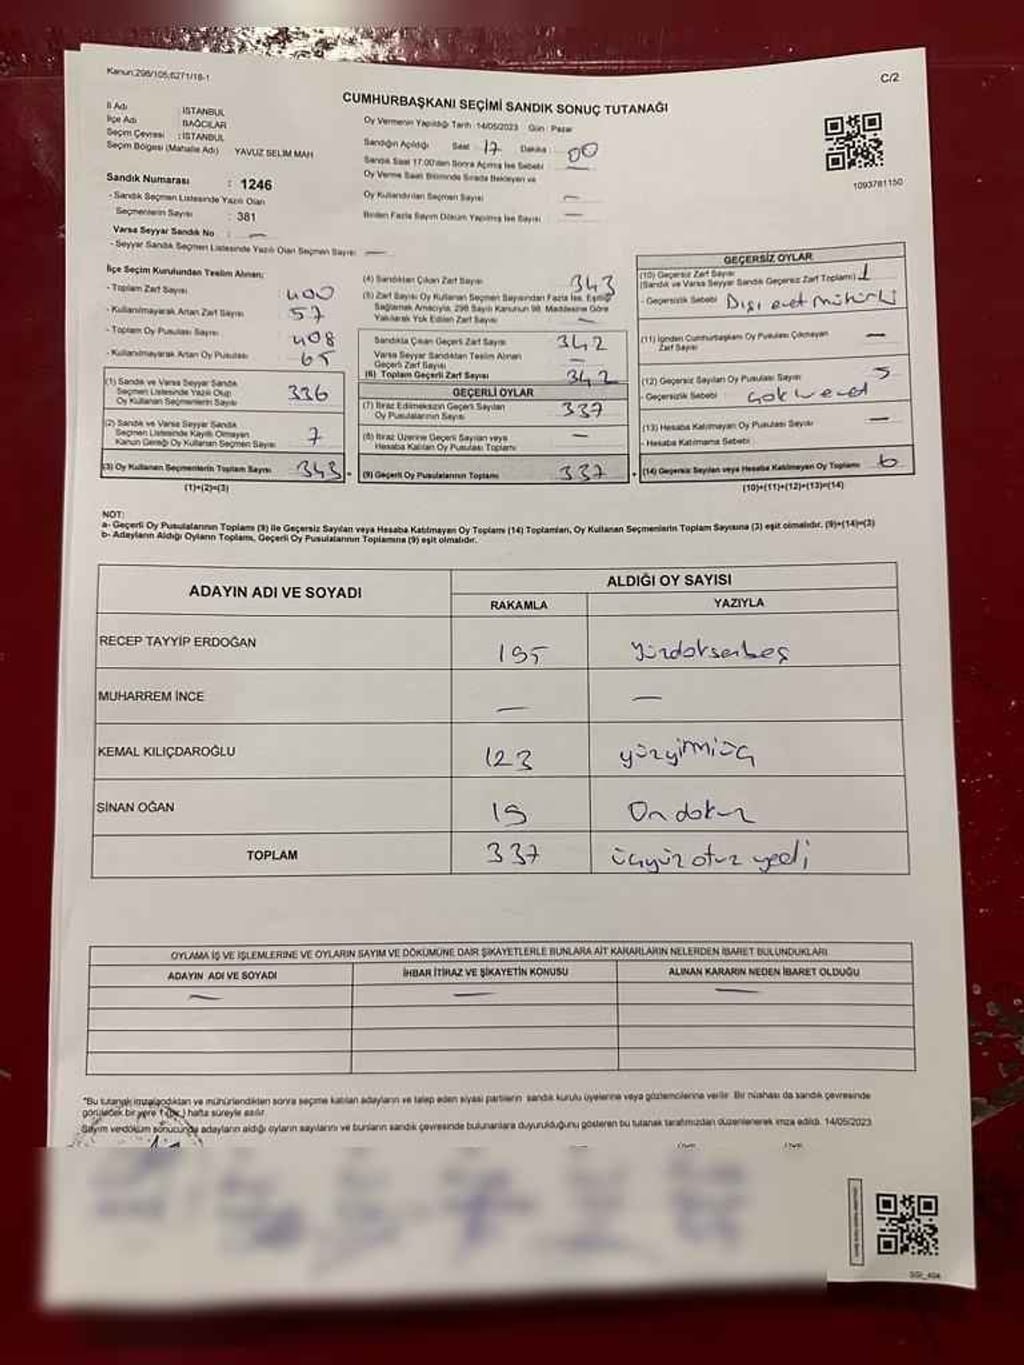 Kanun:298/105;6271/18-1
C/2
CUMHURBAŞKANI SEÇİMİ SANDIK SONUÇ TUTANAĞI
İl Adı : İSTANBUL
İlçe Adı : BAĞCILAR
Seçim Çevresi : İSTANBUL
Seçim Bölgesi (Mahalle Adı) YAVUZ SELİM MAH
Sandık Numarası : 1246
- Sandık Seçmen Listesinde Yazılı Olan
Seçmenlerin Sayısı : 381
Varsa Seyyar Sandık No : —
- Seyyar Sandık Seçmen Listesinde Yazılı Olan Seçmen Sayısı —
Oy Vermenin Yapıldığı Tarih :14/05/2023 Gün : Pazar
Sandığın Açıldığı Saat 17 Dakika : 00
Sandık Saat 17:00'den Sonra Açılmış İse Sebebi : —
Oy Verme Saati Bitiminde Sırada Bekleyen ve
Oy Kullandırılan Seçmen Sayısı —
Birden Fazla Sayım Döküm Yapılmış İse Sayısı —
1093781150
İlçe Seçim Kurulundan Teslim Alınan:
- Toplam Zarf Sayısı 400
- Kullanılmayarak Artan Zarf Sayısı 57
- Toplam Oy Pusulası Sayısı 408
- Kullanılmayarak Artan Oy Pusulası 65
(1) Sandık ve Varsa Seyyar Sandık
Seçmen Listesinde Yazılı Olup
Oy Kullanan Seçmenlerin Sayısı 336
(2) Sandık ve Varsa Seyyar Sandık
Seçmen Listesinde Kayıtlı Olmayan
Kanun Gereği Oy Kullanan Seçmen Sayısı 7
(3) Oy Kullanan Seçmenlerin Toplam Sayısı 343
(1)+(2)=(3)
(4) Sandıktan Çıkan Zarf Sayısı 343
(5) Zarf Sayısı Oy Kullanan Seçmen Sayısından Fazla İse, Eşitliği
Sağlamak Amacıyla, 298 Sayılı Kanunun 98. Maddesine Göre
Yakılarak Yok Edilen Zarf Sayısı —
Sandıkta Çıkan Geçerli Zarf Sayısı 342
Varsa Seyyar Sandıktan Teslim Alınan
Geçerli Zarf Sayısı —
(6) Toplam Geçerli Zarf Sayısı 342
GEÇERLİ OYLAR
(7) İtiraz Edilmeksizin Geçerli Sayılan
Oy Pusulalarının Sayısı 337
(8) İtiraz Üzerine Geçerli Sayılan veya
Hesaba Katılan Oy Pusulası Toplamı —
(9) Geçerli Oy Pusulalarının Toplamı 337
GEÇERSİZ OYLAR
(10) Geçersiz Zarf Sayısı
(Sandık ve Varsa Seyyar Sandık Geçersiz Zarf Toplamı) 1
- Geçersizlik Sebebi Dışı evet mühürlü
(11) İçinden Cumhurbaşkanı Oy Pusulası Çıkmayan
Zarf Sayısı —
(12) Geçersiz Sayılan Oy Pusulası Sayısı 5
- Geçersizlik Sebebi
(13) Hesaba Katılmayan Oy Pusulası Sayısı —
- Hesaba Katılmama Sebebi
(14) Geçersiz Sayılan veya Hesaba Katılmayan Oy Toplamı 6
(10)+(11)+(12)+(13)=(14)
NOT:
a- Geçerli Oy Pusulalarının Toplamı (9) ile Geçersiz Sayılan veya Hesaba Katılmayan Oy Toplamı (14) Toplamları, Oy Kullanan Seçmenlerin Toplam Sayısına (3) eşit olmalıdır. (9)+(14)=(3)
b- Adayların Aldığı Oyların Toplamı, Geçerli Oy Pusulalarının Toplamına (9) eşit olmalıdır.
ADAYIN ADI VE SOYADI
ALDIĞI OY SAYISI
RAKAMLA YAZIYLA
RECEP TAYYİP ERDOĞAN 195 yüzdoksanbeş
MUHARREM İNCE — —
KEMAL KILIÇDAROĞLU 123 yüzyirmiüç
SİNAN OĞAN 19 On dokuz
TOPLAM 337 üçyüz otuz yedi
OYLAMA İŞ VE İŞLEMLERİNE VE OYLARIN SAYIM VE DÖKÜMÜNE DAİR ŞİKAYETLERLE BUNLARA AİT KARARLARIN NELERDEN İBARET BULUNDUKLARI
ADAYIN ADI VE SOYADI İHBAR İTİRAZ VE ŞİKAYETİN KONUSU ALINAN KARARIN NEDEN İBARET OLDUĞU
— — —
*Bu tutanak imzalandıktan ve mühürlendikten sonra seçime katılan adayların ve talep eden siyasi partilerin sandık kurulu üyelerine veya gözlemcilerine verilir. Bir nüshası da sandık çevresinde
görülecek bir yere 1 (bir) hafta süreyle asılır.
Sayım ve döküm sonucunda adayların aldığı oyların sayılarını ve bunların sandık çevresinde bulunanlara duyurulduğunu gösteren bu tutanak tarafımızdan düzenlenerek imza edildi. 14/05/2023